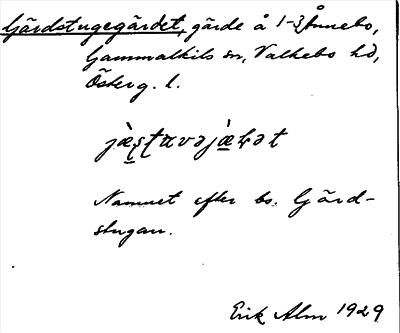 Gärdstugegärdet, gärde å 1-3 Ånnebo,
Gammalkils sn, Valkebo hd,
Österg. l.
Namnet efter bs. Gärd-
stugan.
Erik Alm 1929